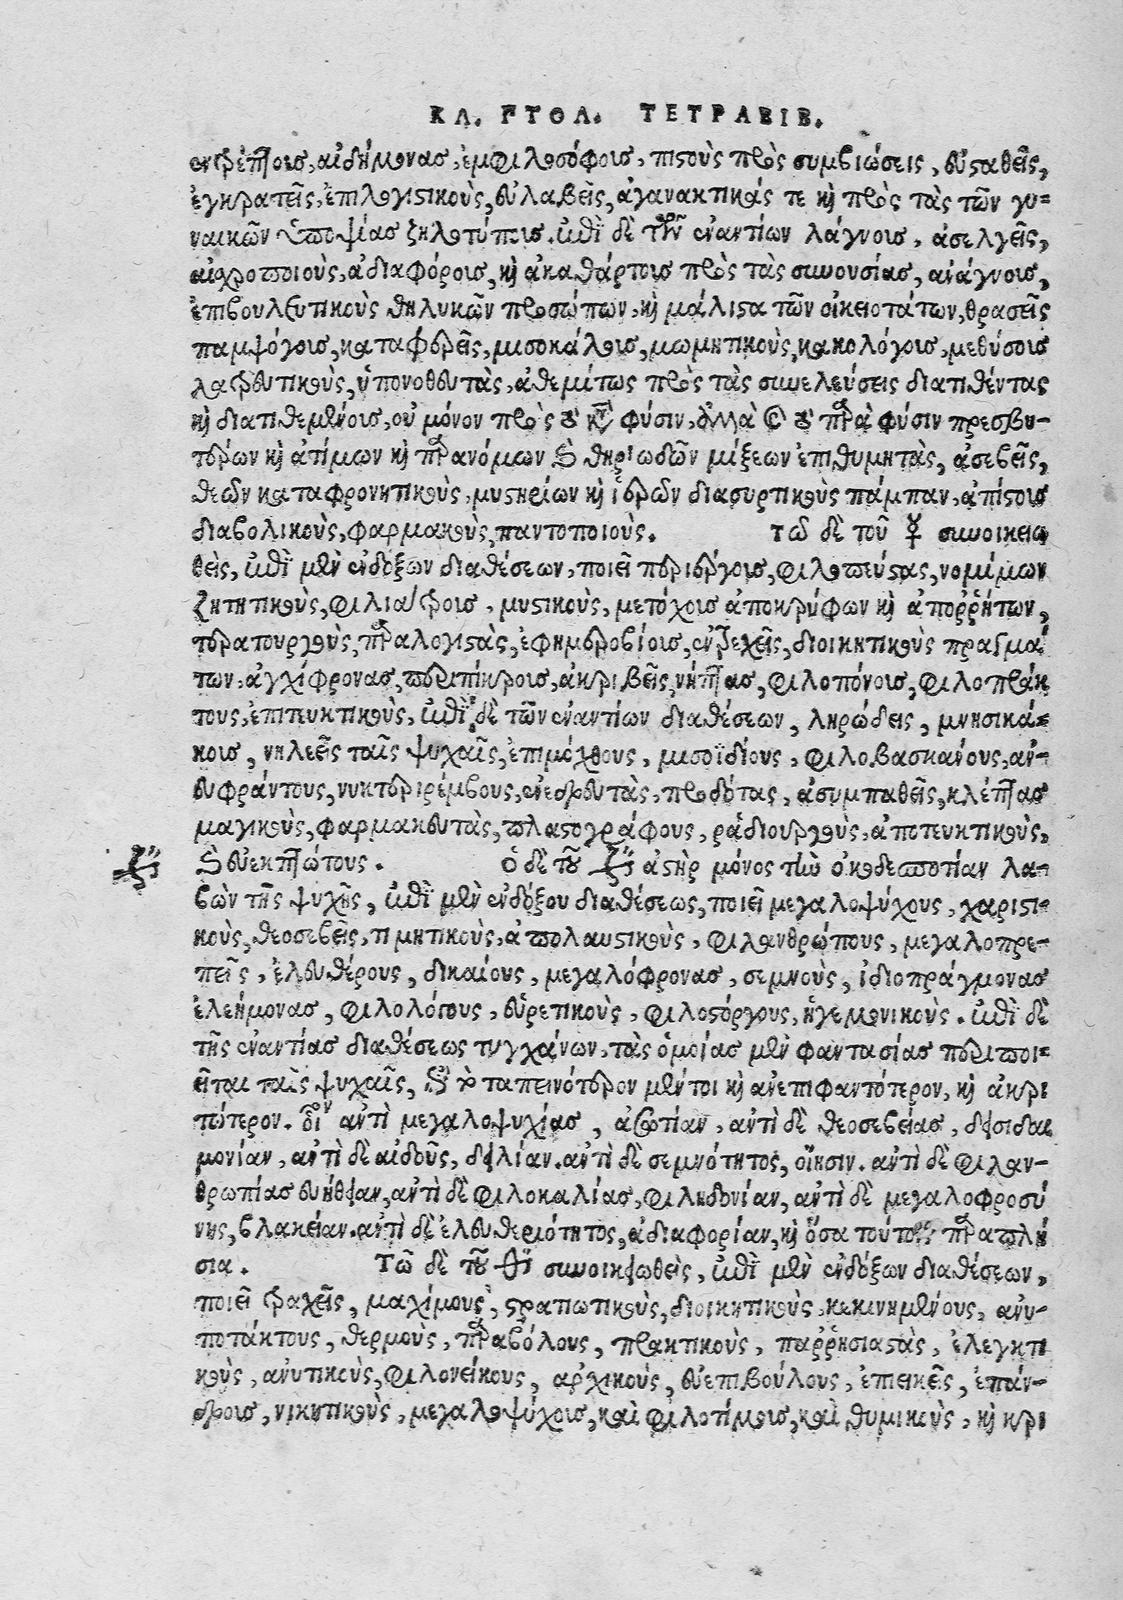 ΚΛ. ΠΤΟΛ. ΤΕΤΡΑΒΙΒ.
ἐντρέπτους, αἰδήμονας, ἐμφιλοσόφους, πιστοὺς πρὸς συμβιώσεις, εὐσταθεῖς,
ἐγκρατεῖς, ἐπιλογιστικοὺς, εὐλαβεῖς, ἀγανακτικούς τε καὶ πρὸς τὰς τῶν γυ-
ναικῶν ὑποψίας ζηλοτύπους. ἐπὶ δὲ τῶν ἐναντίων λάγνους, ἀσελγεῖς,
αἰσχροποιοὺς, ἀδιαφόρους, καὶ ἀκαθάρτους πρὸς τὰς συνουσίας, ἀνάγνους,
ἐπιβουλευτικοὺς θηλυκῶν προσώπων, καὶ μάλιστα τῶν οἰκειοτάτων, θρασεῖς
παμψόγους, καταφερεῖς, μισοκάλους, μωμητικοὺς, κακολόγους, μεθύσους
λατρευτικοὺς, ὑπονοθευτὰς, ἀθεμίτως πρὸς τὰς συνελεύσεις διατιθέντας
καὶ διατιθεμένους, οὐ μόνον πρὸς τὸ κατὰ φύσιν, ἀλλὰ καὶ τὸ παρὰ φύσιν πρεσβυ-
τέρων καὶ ἀτίμων καὶ παρανόμων καὶ θηριωδῶν μίξεων ἐπιθυμητὰς, ἀσεβεῖς,
θεῶν καταφρονητικοὺς, μυστηρίων καὶ ἱερῶν διασυρτικοὺς πάμπαν, ἀπίστους
διαβολικοὺς, φαρμακοὺς, παντοποιούς. τῶ δὲ τοῦ ☿ συνοικειω
θεὶς, ἐπὶ μὲν ἐνδόξων διαθέσεων, ποιεῖ περιέργους, φιλοπεύστας, νομίμων
ζητητικοὺς, φιλιάτρους, μυστικοὺς, μετόχους ἀποκρύφων καὶ ἀποῤῥήτων,
τερατουργοὺς, παραλογιστὰς, ἐφημεροβίους, ἐντρεχεῖς, διοικητικοὺς πραγμά
των, ἀγχίφρονας, περιπίκρους, ἀκριβεῖς, νήπτας, φιλοπόνους, φιλοπράκ
τους, ἐπιτευκτικοὺς, ἐπὶ δὲ τῶν ἐναντίων διαθέσεων, ληρώδεις, μνησικά-
κους, νηλεεῖς ταῖς ψυχαῖς, ἐπιμόχθους, μισοϊδίους, φιλοβασκάνους, ἀν-
ευφράντους, νυκτεριρέμβους, ἐνεδρευτὰς, προδότας, ἀσυμπαθεῖς, κλέπτας
μαγικοὺς, φαρμακευτὰς, πλαστογράφους, ῥᾳδιουργοὺς, ἀποτευκτικοὺς,
καὶ εὐεκπτώτους. ὁ δὲ τοῦ ♃ ἀστὴρ μόνος τὴν οἰκοδεσποτίαν λα-
βὼν τῆς ψυχῆς, ἐπὶ μὲν ἐνδόξου διαθέσεως, ποιεῖ μεγαλοψύχους, χαριστι-
κοὺς, θεοσεβεῖς, τιμητικοὺς, ἀπολαυστικοὺς, φιλανθρώπους, μεγαλοπρε-
πεῖς, ἐλευθέρους, δικαίους, μεγαλόφρονας, σεμνοὺς, ἰδιοπράγμονας
ἐλεήμονας, φιλολόγους, εὑρετικοὺς, φιλοστόργους, ἡγεμονικούς. ἐπὶ δὲ
τῆς ἐναντίας διαθέσεως τυγχάνων, τὰς ὁμοίας μὲν φαντασίας περιποι-
εῖται ταῖς ψυχαῖς, ἐπὶ τὸ ταπεινότερον μέντοι καὶ ἀνεπιφαντότερον, καὶ ἀκρι
τώτερον. οἷον ἀντὶ μεγαλοψυχίας, ἀσωτίαν, ἀντὶ δὲ θεοσεβείας, δεισιδαι
μονίαν, ἀντὶ δὲ αἰδοῦς, δειλίαν. ἀντὶ δὲ σεμνότητος, οἴησιν. ἀντὶ δὲ φιλαν-
θρωπίας εὐήθειαν, ἀντὶ δὲ φιλοκαλίας, φιληδονίαν, ἀντὶ δὲ μεγαλοφροσύ
νης, βλακείαν. ἀντὶ δὲ ἐλευθεριότητος, ἀδιαφορίαν, καὶ ὅσα τούτοις παραπλή
σια. Τῶ δὲ τοῦ ♂ συνοικειωθεὶς, ἐπὶ μὲν ἐνδόξων διαθέσεων,
ποιεῖ τραχεῖς, μαχίμους, στρατιωτικοὺς, διοικητικοὺς, κεκινημένους, ἀνυ-
ποτάκτους, θερμοὺς, παραβόλους, πρακτικοὺς, παῤῥησιαστὰς, ἐλεγκτι
κοὺς, ἀνυτικοὺς, φιλονείκους, ἀρχικοὺς, εὐεπιβούλους, ἐπιεικεῖς, ἐπάν-
δρους, νικητικοὺς, μεγαλοψύχους, καὶ φιλοτίμους, καὶ θυμικοὺς, καὶ κρι